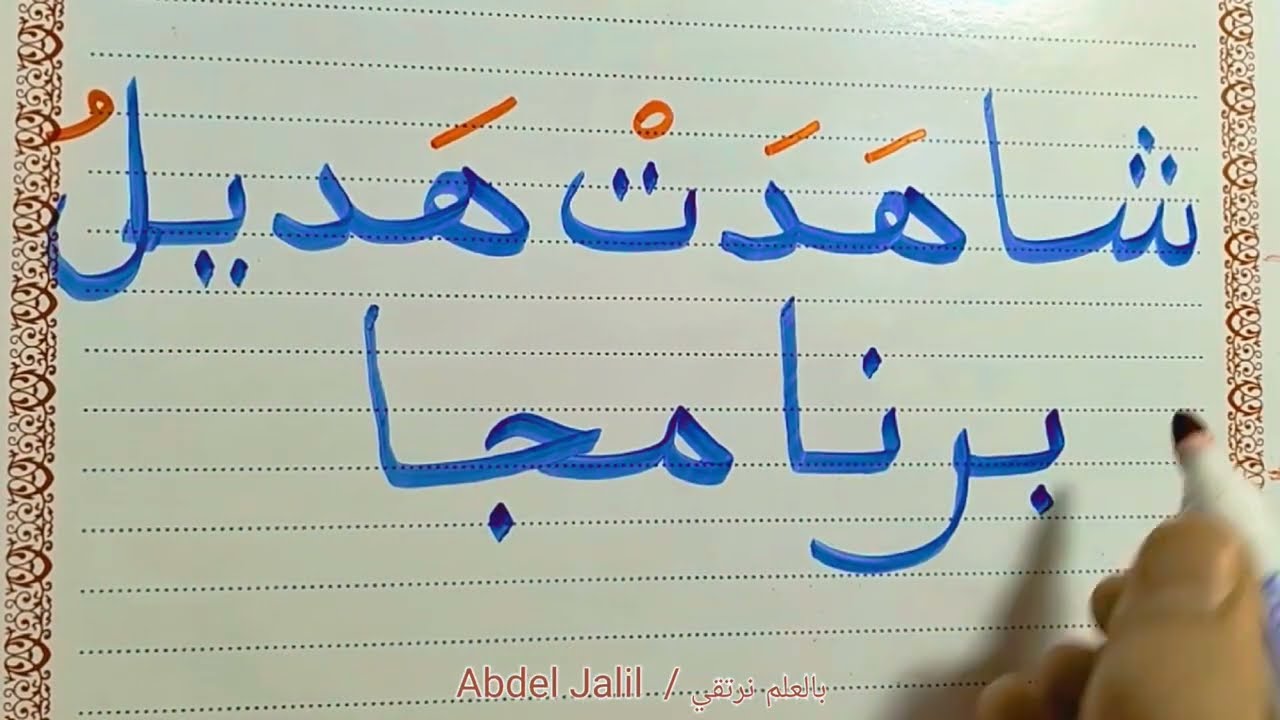 شاهَدَتْ هَديلُ
برنامجا
Abdel Jalil / بالعلم نرتقي